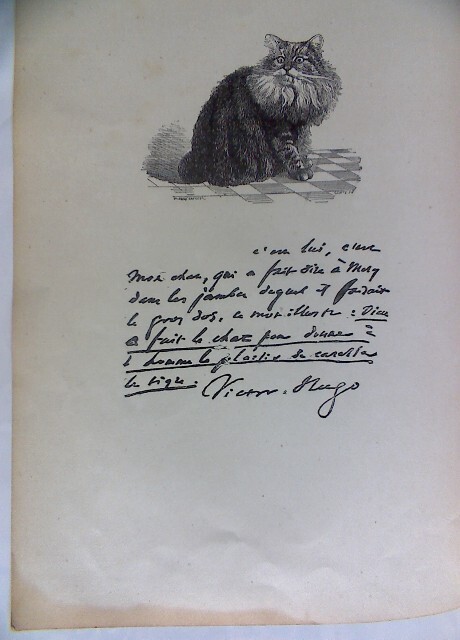 c'est lui, c'est
mon chat, qui a fait dire à Méry
dans les jambes duquel il faisait
le gros dos, ce mot illustre : Dieu
a fait le chat pour donner à
l'homme le plaisir de caresser
le tigre. Victor Hugo